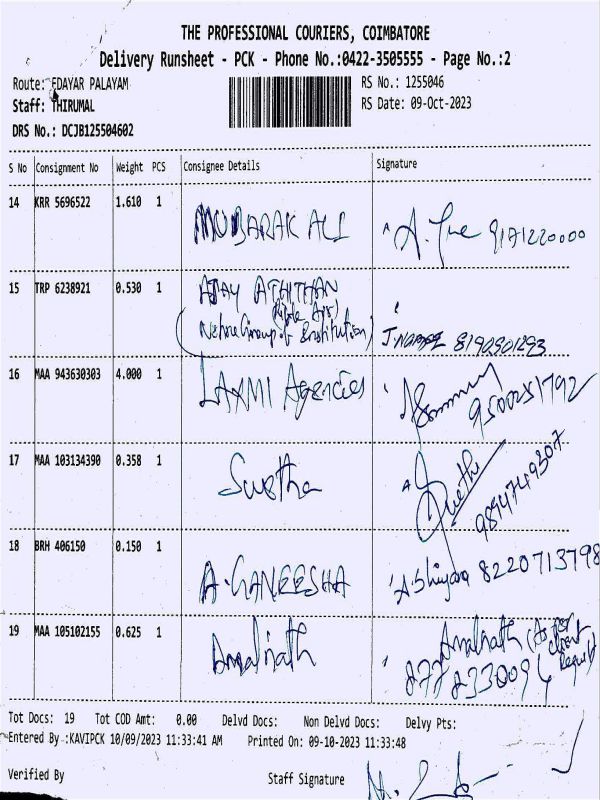 THE PROFESSIONAL COURIERS, COIMBATORE
Delivery Runsheet - PCK - Phone No.:0422-3505555 - Page No.:2
Route: EDAYAR PALAYAM
RS No.: 1255046
Staff: THIRUMAL
RS Date: 09-Oct-2023
DRS No.: DCJB125504602
S No Consignment No Weight PCS Consignee Details Signature
14 KRR 5696522 1.610 1 MUBARAK ALI 9171220000
15 TRP 6238921 0.530 1 AJAY ATHITHAN
Nehru Group of Institution)
16 MAA 943630303 4.000 1 LAXMI Agencies
17 MAA 103134390 0.358 1 Swetha
18 BRH 406150 0.150 1 A. GANEESHA 8220713798
19 MAA 105102155 0.625 1 Amalnath Amalnath (As per
client
Request)
8778330094
Tot Docs: 19 Tot COD Amt: 0.00 Delvd Docs: Non Delvd Docs: Delvy Pts:
Entered By :KAVIPCK 10/09/2023 11:33:41 AM Printed On: 09-10-2023 11:33:48
Verified By Staff Signature